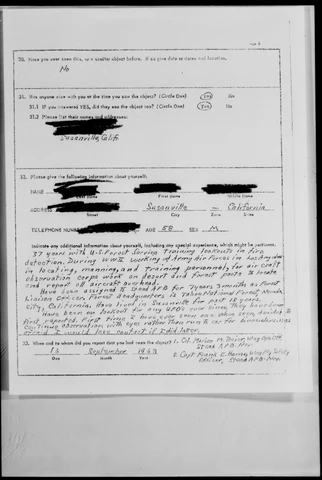 30. Have you ever seen this, or a similar object before. If so give date or dates and location.
No
31. Was anyone else with you at the time you saw the object? (Circle One) Yes No
31.1 If you answered YES, did they see the object too? (Circle One) Yes No
31.2 Please list their names and addresses:
Susanville, Calif.
32. Please give the following information about yourself:
NAME
Last Name First Name Middle Name
ADDRESS Susanville - California
Street City Zone State
TELEPHONE NUMBER AGE 58 SEX M
Indicate any additional information about yourself, including any special experience, which might be pertinent.
37 years with U.S. Forest Service Training lookouts in fire
detection. During WW II working w/ Army Air Forces in
in locating, manning, and training personnel for air craft
observation corps work on desert and Forest posts to locate
and report all aircraft overhead.
Have been assigned to Stead AFB for 7 years 3 months as Forest
Liaison Officer, Forest Headquarters is Tahoe National Forest, Nevada
City, California. Have lived in Susanville for past 18 years.
Have been on lookout for any UFO's ever since they have been
first reported. First time I have ever seen one. When seen, decided to
continue observation with eyes rather than run to car for binoculars
afraid I would lose contact if I did later.
33. When and to whom did you report that you had seen the object? 1. Col.
Stead A.F.B. Nev.
16 September 1963 2. Capt. Frank
Day Month Year Officer, Stead AFB-Nev.